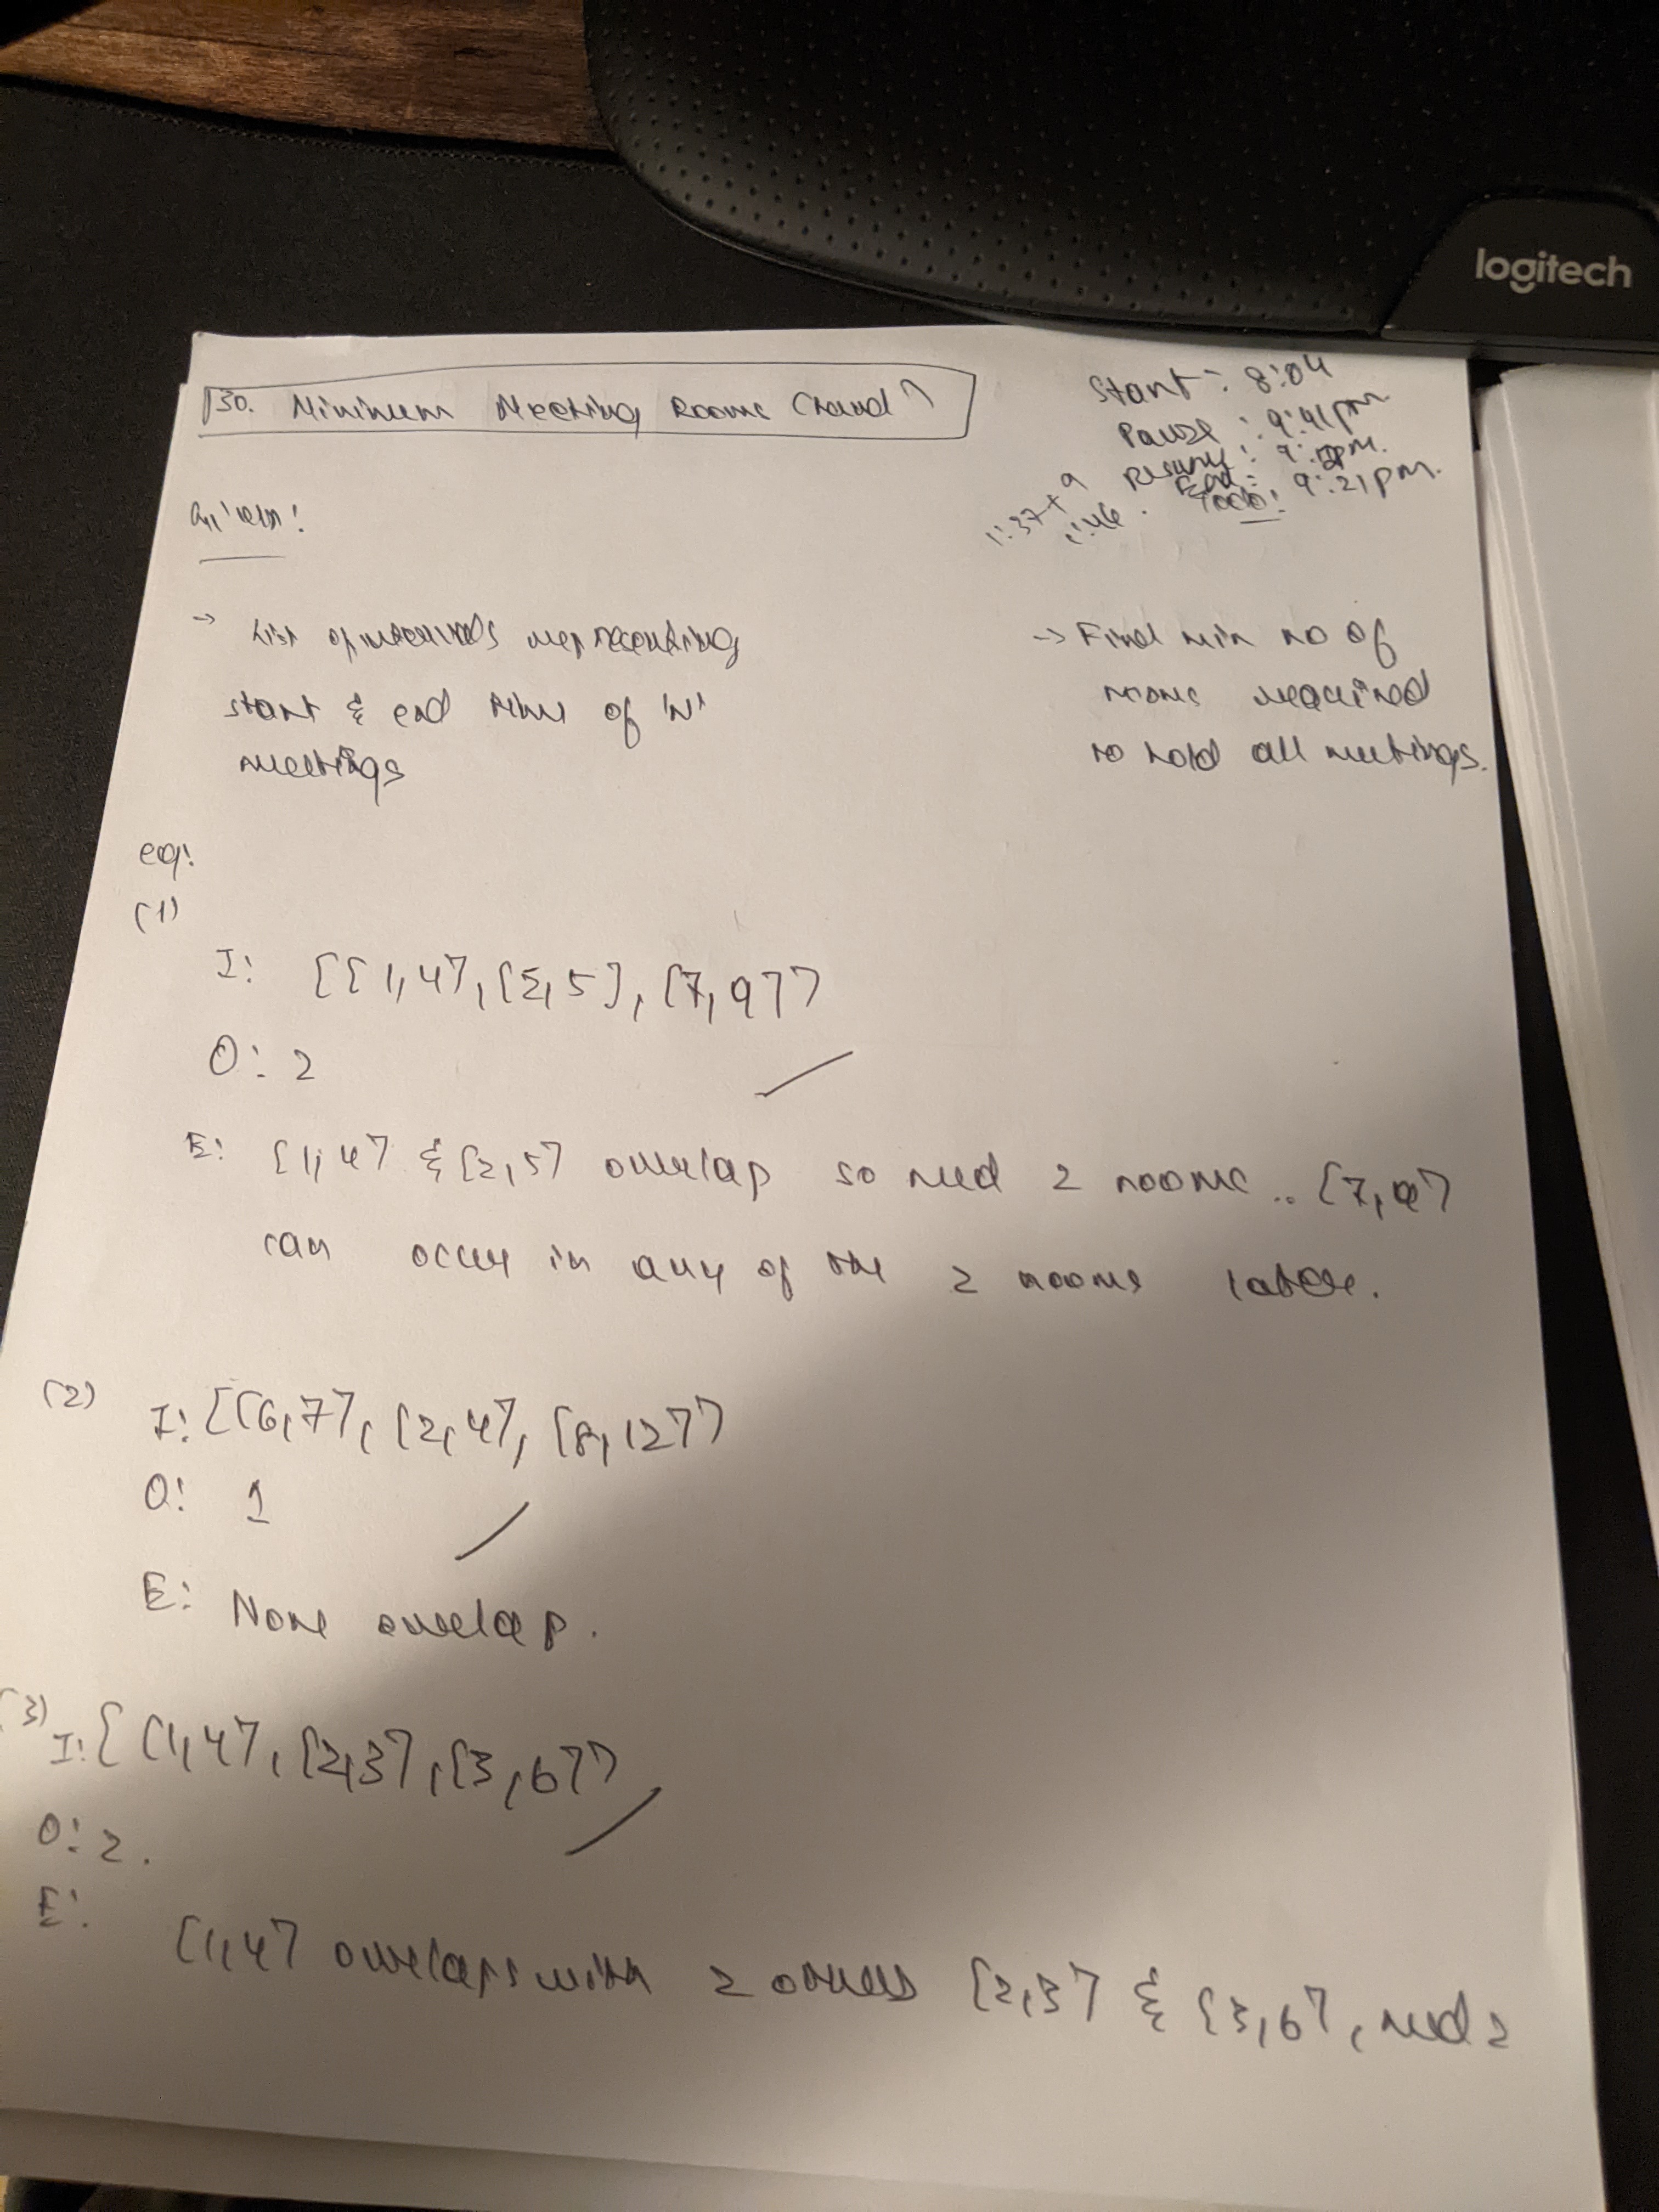 logitech
130. Minimum Meeting Rooms (hard)
Start: 8:04
Pause: 9:41pm
Resume: 9:12pm.
End: 9:21pm.
Todo:
1:37+9
Given:
→ List of intervals representing
start & end time of 'N'
meetings
→ Find min no of
rooms required
to hold all meetings.
eg:
(1)
I: [[1,4], [2,5], [7,9]]
O: 2
E: [1,4] & [2,5] overlap so need 2 rooms.. [7,9]
can occur in any of the 2 rooms later.
(2)
I: [[6,7], [2,4], [8,12]]
O: 1
E: None overlap.
(3)
I: [[1,4], [2,3], [3,6]]
O: 2.
E:
[1,4] overlaps with 2 others [2,3] & [3,6], need 2